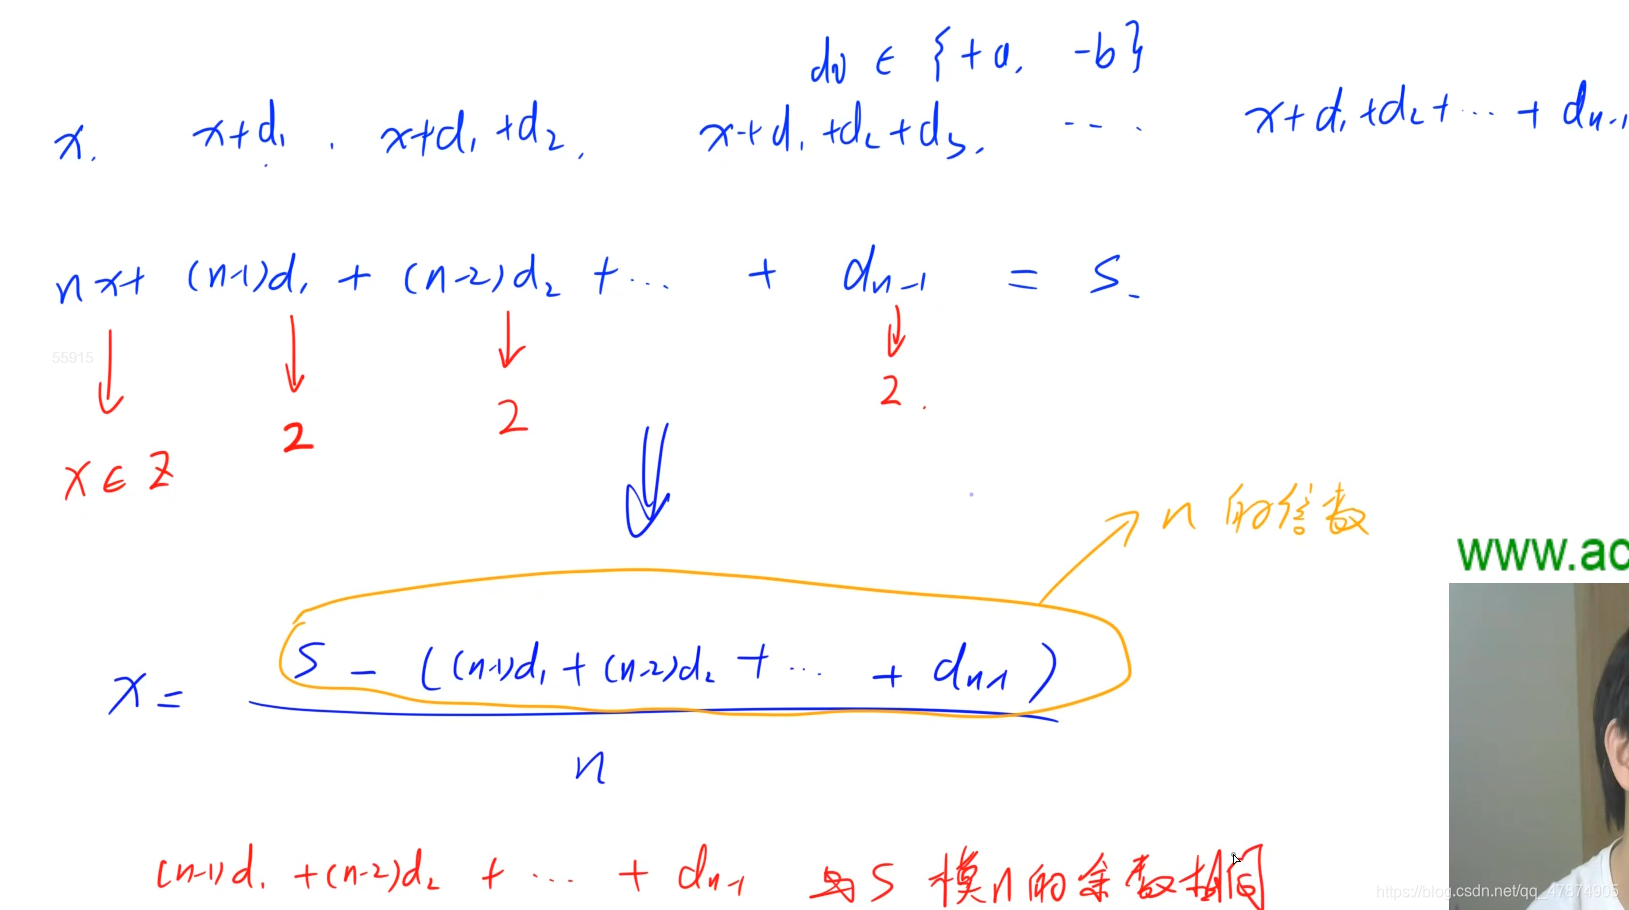 di ∈ {+a, -b}
x, x+d₁, x+d₁+d₂, x+d₁+d₂+d₃, ... x+d₁+d₂+...+dₙ₋₁
nx+(n-1)d₁+(n-2)d₂+...+dₙ₋₁ = S
55915
2
2
2
x∈Z
n的倍数
www.ac
x = (S-((n-1)d₁+(n-2)d₂+...+dₙ₋₁))
n
(n-1)d₁+(n-2)d₂+...+dₙ₋₁ 与S模n的余数相同
https://blog.csdn.net/qq_47874905